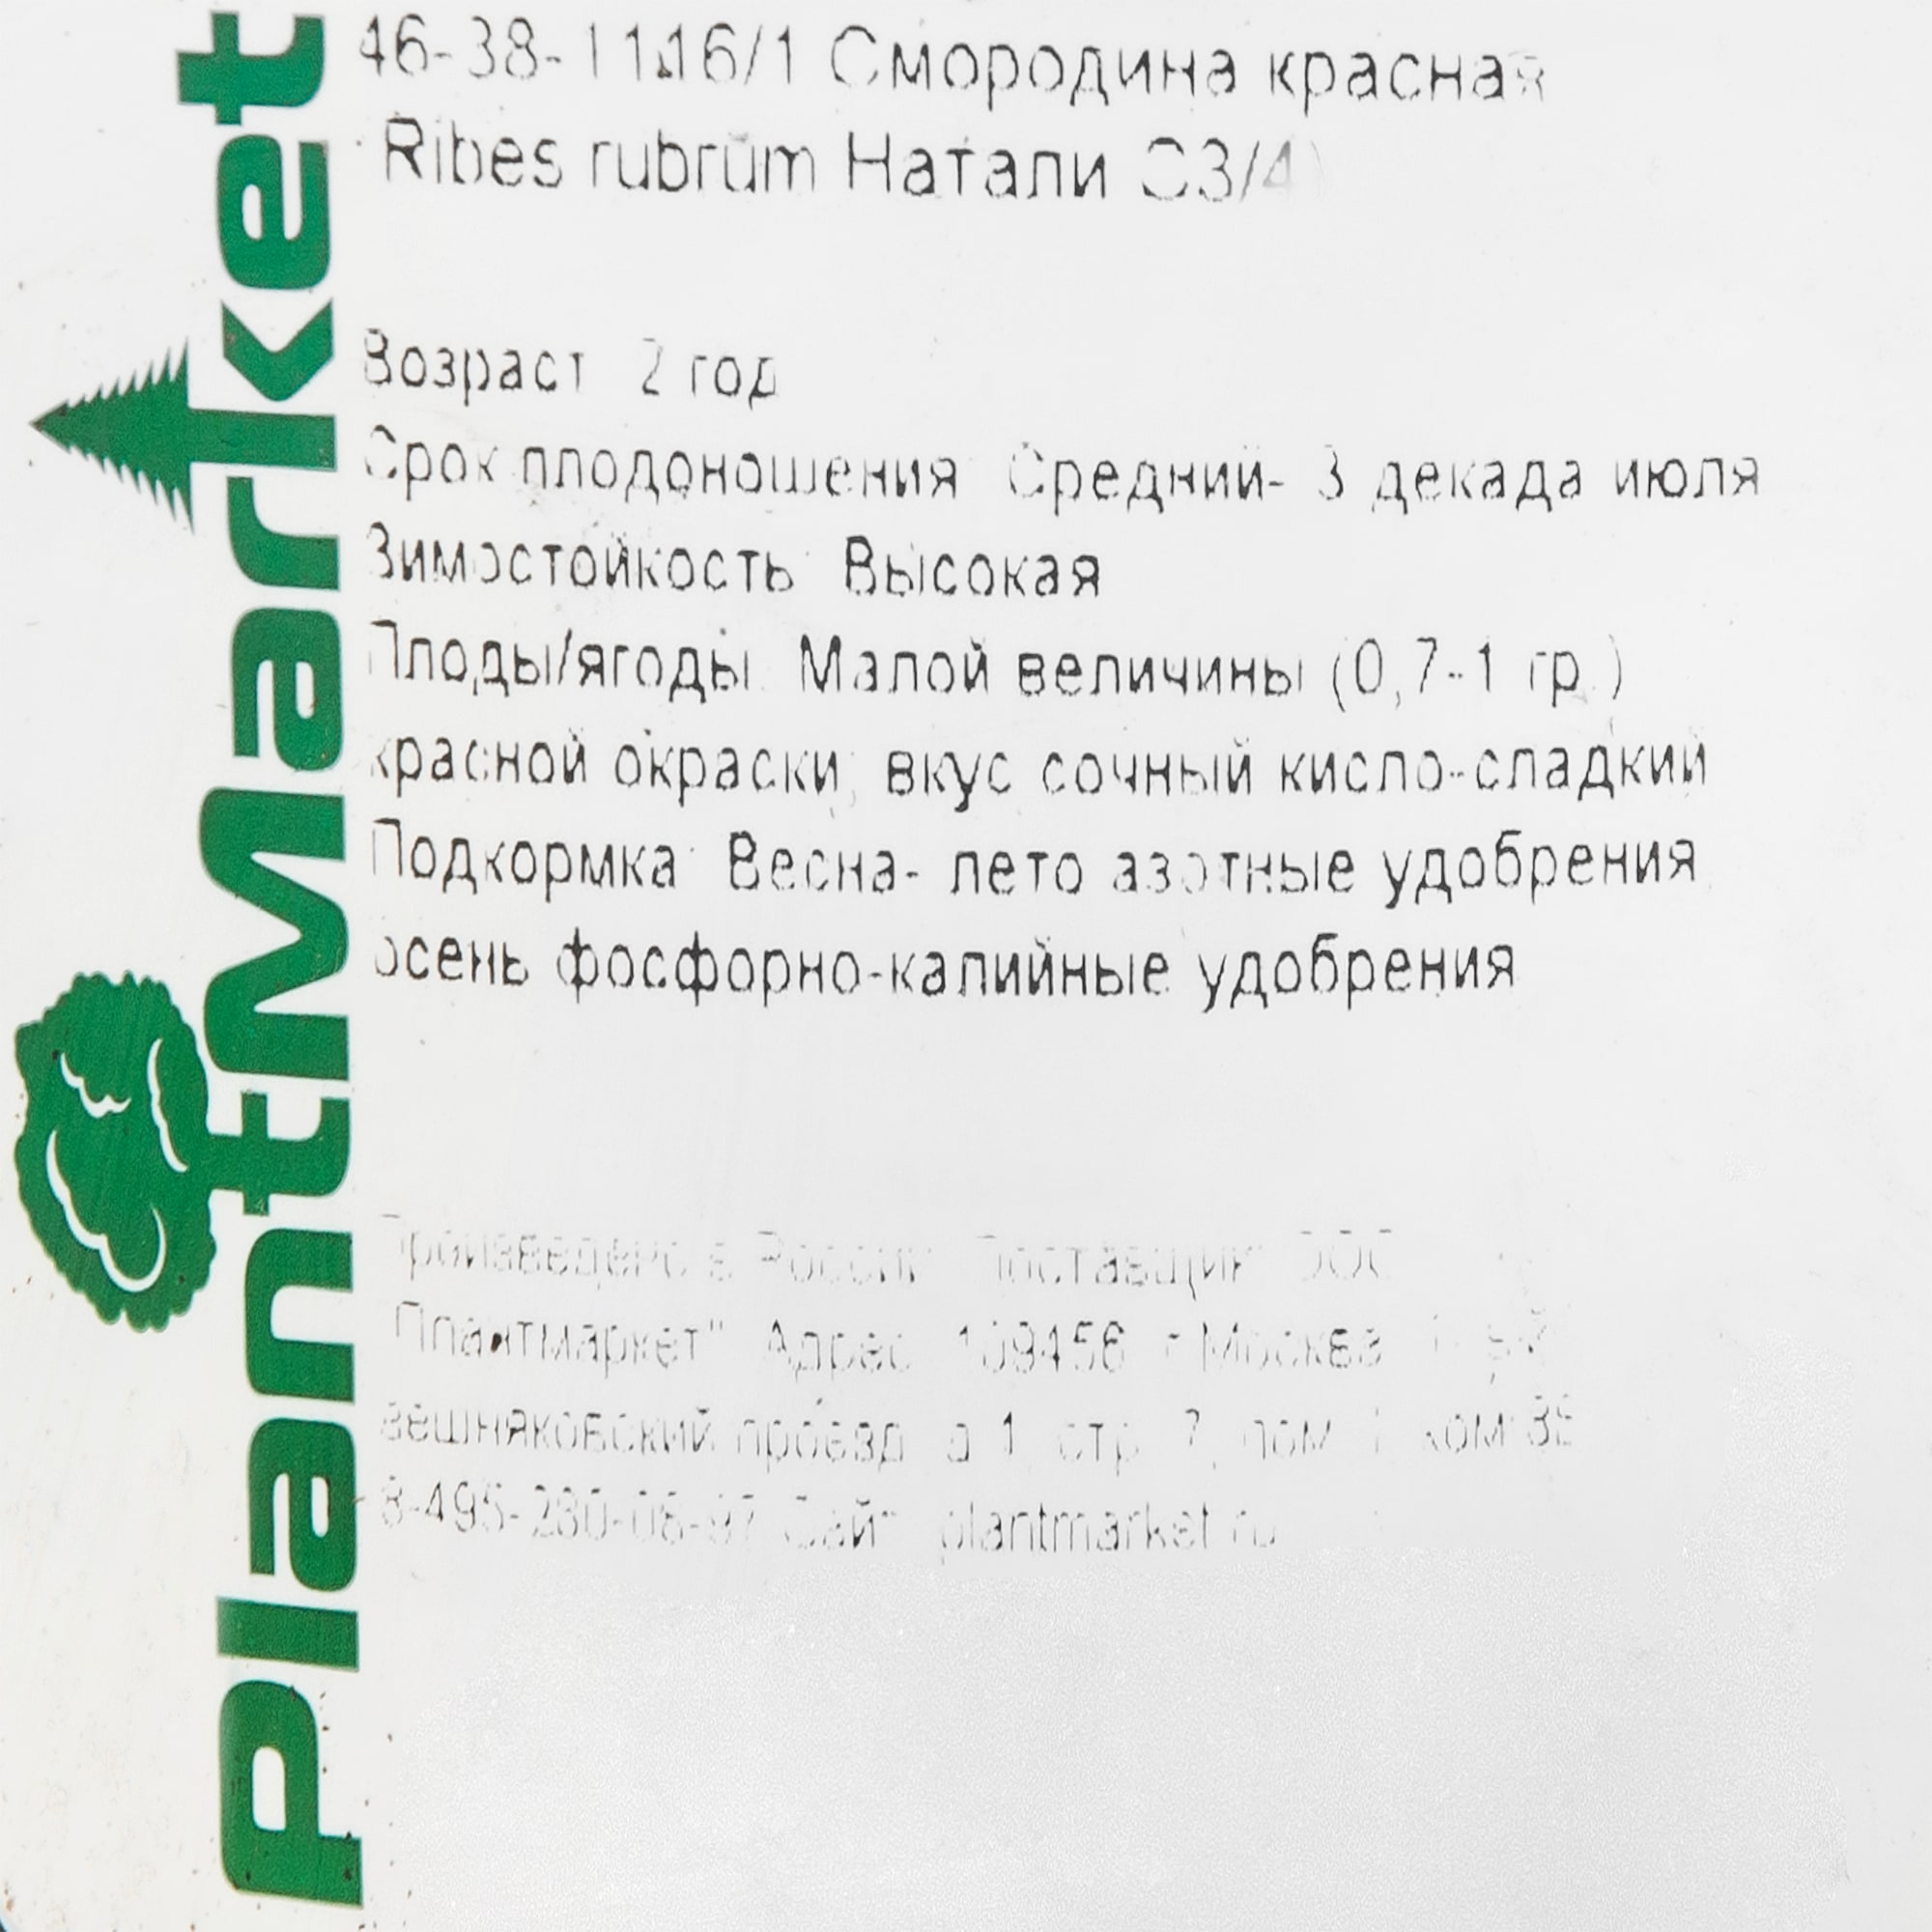 PlantMarket
46-38-1116/1 Смородина красная
Ribes rubrum Натали С3/4
Возраст 2 год
Срок плодоношения Средний- 3 декада июля
Зимостойкость Высокая
Плоды/ягоды. Малой величины (0,7-1 гр.)
красной окраски, вкус сочный кисло-сладкий
Подкормка: Весна- лето азотные удобрения
осень фосфорно-калийные удобрения
Произведено в России Поставщик ООО
"Плантмаркет" Адрес 109456 г Москва
вешняковский проезд д 1 стр 7, пом ком
Сайт plantmarket.ru